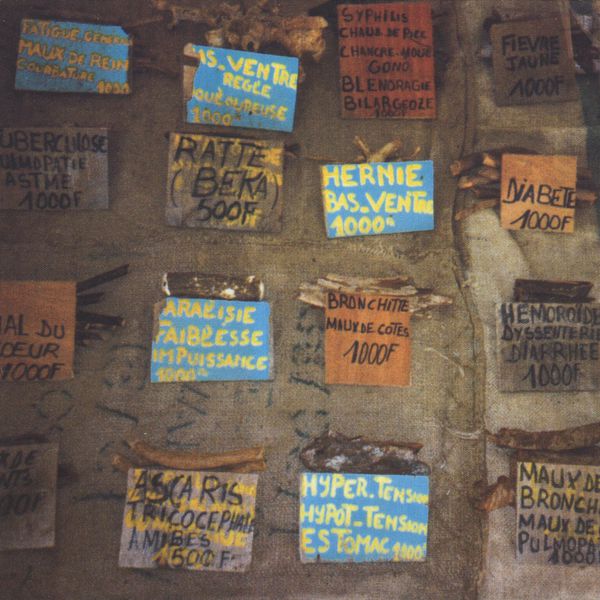 FATIGUE GENERAL
MAUX DE REIN
COURBATURE
1000
AS_VENTRE
REGLE
DOULOUREUSE
1000
SYPHILIS
CHAUD DE PICE
CHANCRE-MOUE
GONO
BLENORAGIE
BILARGEOZE
1000F
FIEVRE
JAUNE
1000F
TUBERCULOSE
PULMOPATIE
ASTME
1000F
RATTE
(BEKA)
500F
HERNIE
BAS_VENTRE
1000
DIABETE
1000F
MAL DU
COEUR
1000F
FAIBLESSE
IMPUISSANCE
1000
BRONCHITE
MAUX DE COTES
1000F
HEMOROÏDE
DYSSENTERIE
DIARRHEE
1000F
DE
NTS
ASCARIS
TRICOCEPHALE
AMIBES
1500F
HYPER_TENSION
HYPOT_TENSION
ESTOMAC 1000
MAUX DE
BRONCHI
MAUX DE
PULMOPA
1000F